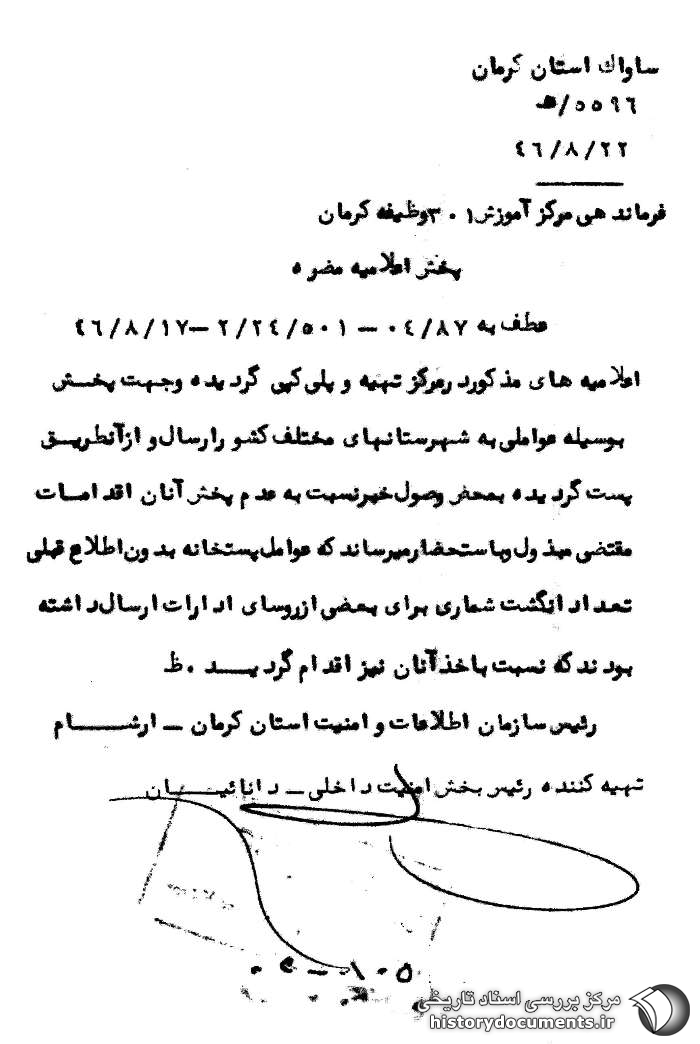 ساواك استان كرمان
۵۵۹٦/ﻫ
٤٦/٨/٢٢
فرماندهی مركز آموزش ۳۰۱ وظیفه كرمان
پخش اعلامیه مضره
عطف به ۰٤/۸۷ – ۲/۲٤/۵۰۱ – ٤٦/۸/۱۷
اعلامیه های مذكور در مركز تهیه و پلی كپی گردیده و جهت پخش
بوسیله عواملی به شهرستانهای مختلف كشور ارسال و از آنطریق
پست گردیده بمحض وصول خبر نسبت به عدم پخش آنان اقدامات
مقتضی مبذول و باستحضار میرساند كه عوامل پستخانه بدون اطلاع قبلی
تعداد انگشت شماری برای بعضی از روسای ادارات ارسال داشته
بودند كه نسبت باخذ آنان نیز اقدام گردید . ظ
رئیس سازمان اطلاعات و امنیت استان كرمان – ارشام
تهیه كننده رئیس بخش امنیت داخلی – دانائیان
۱۰۵
مركز بررسی اسناد تاریخی
historydocuments.ir